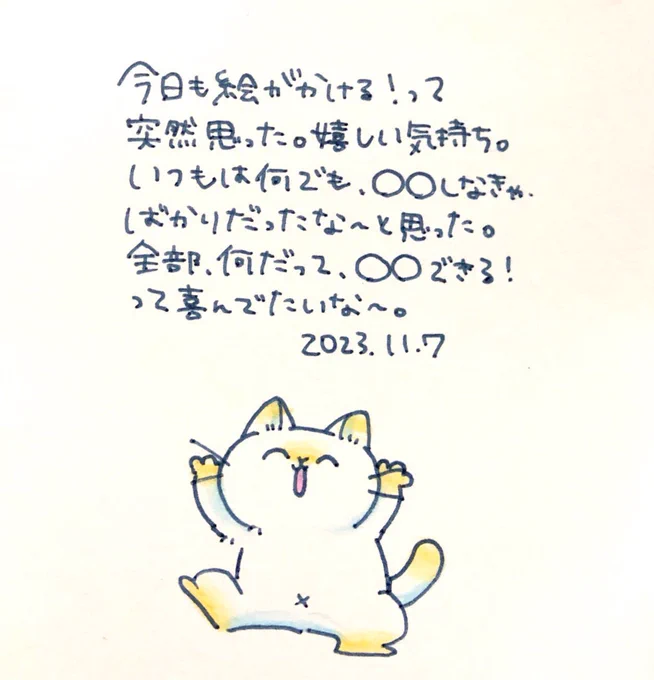 今日も絵がかける！って
突然思った。嬉しい気持ち。
いつもは何でも、〇〇しなきゃ、
ばかりだったな〜と思った。
全部、何だって、〇〇できる！
って喜んでたいな〜。
2023.11.7